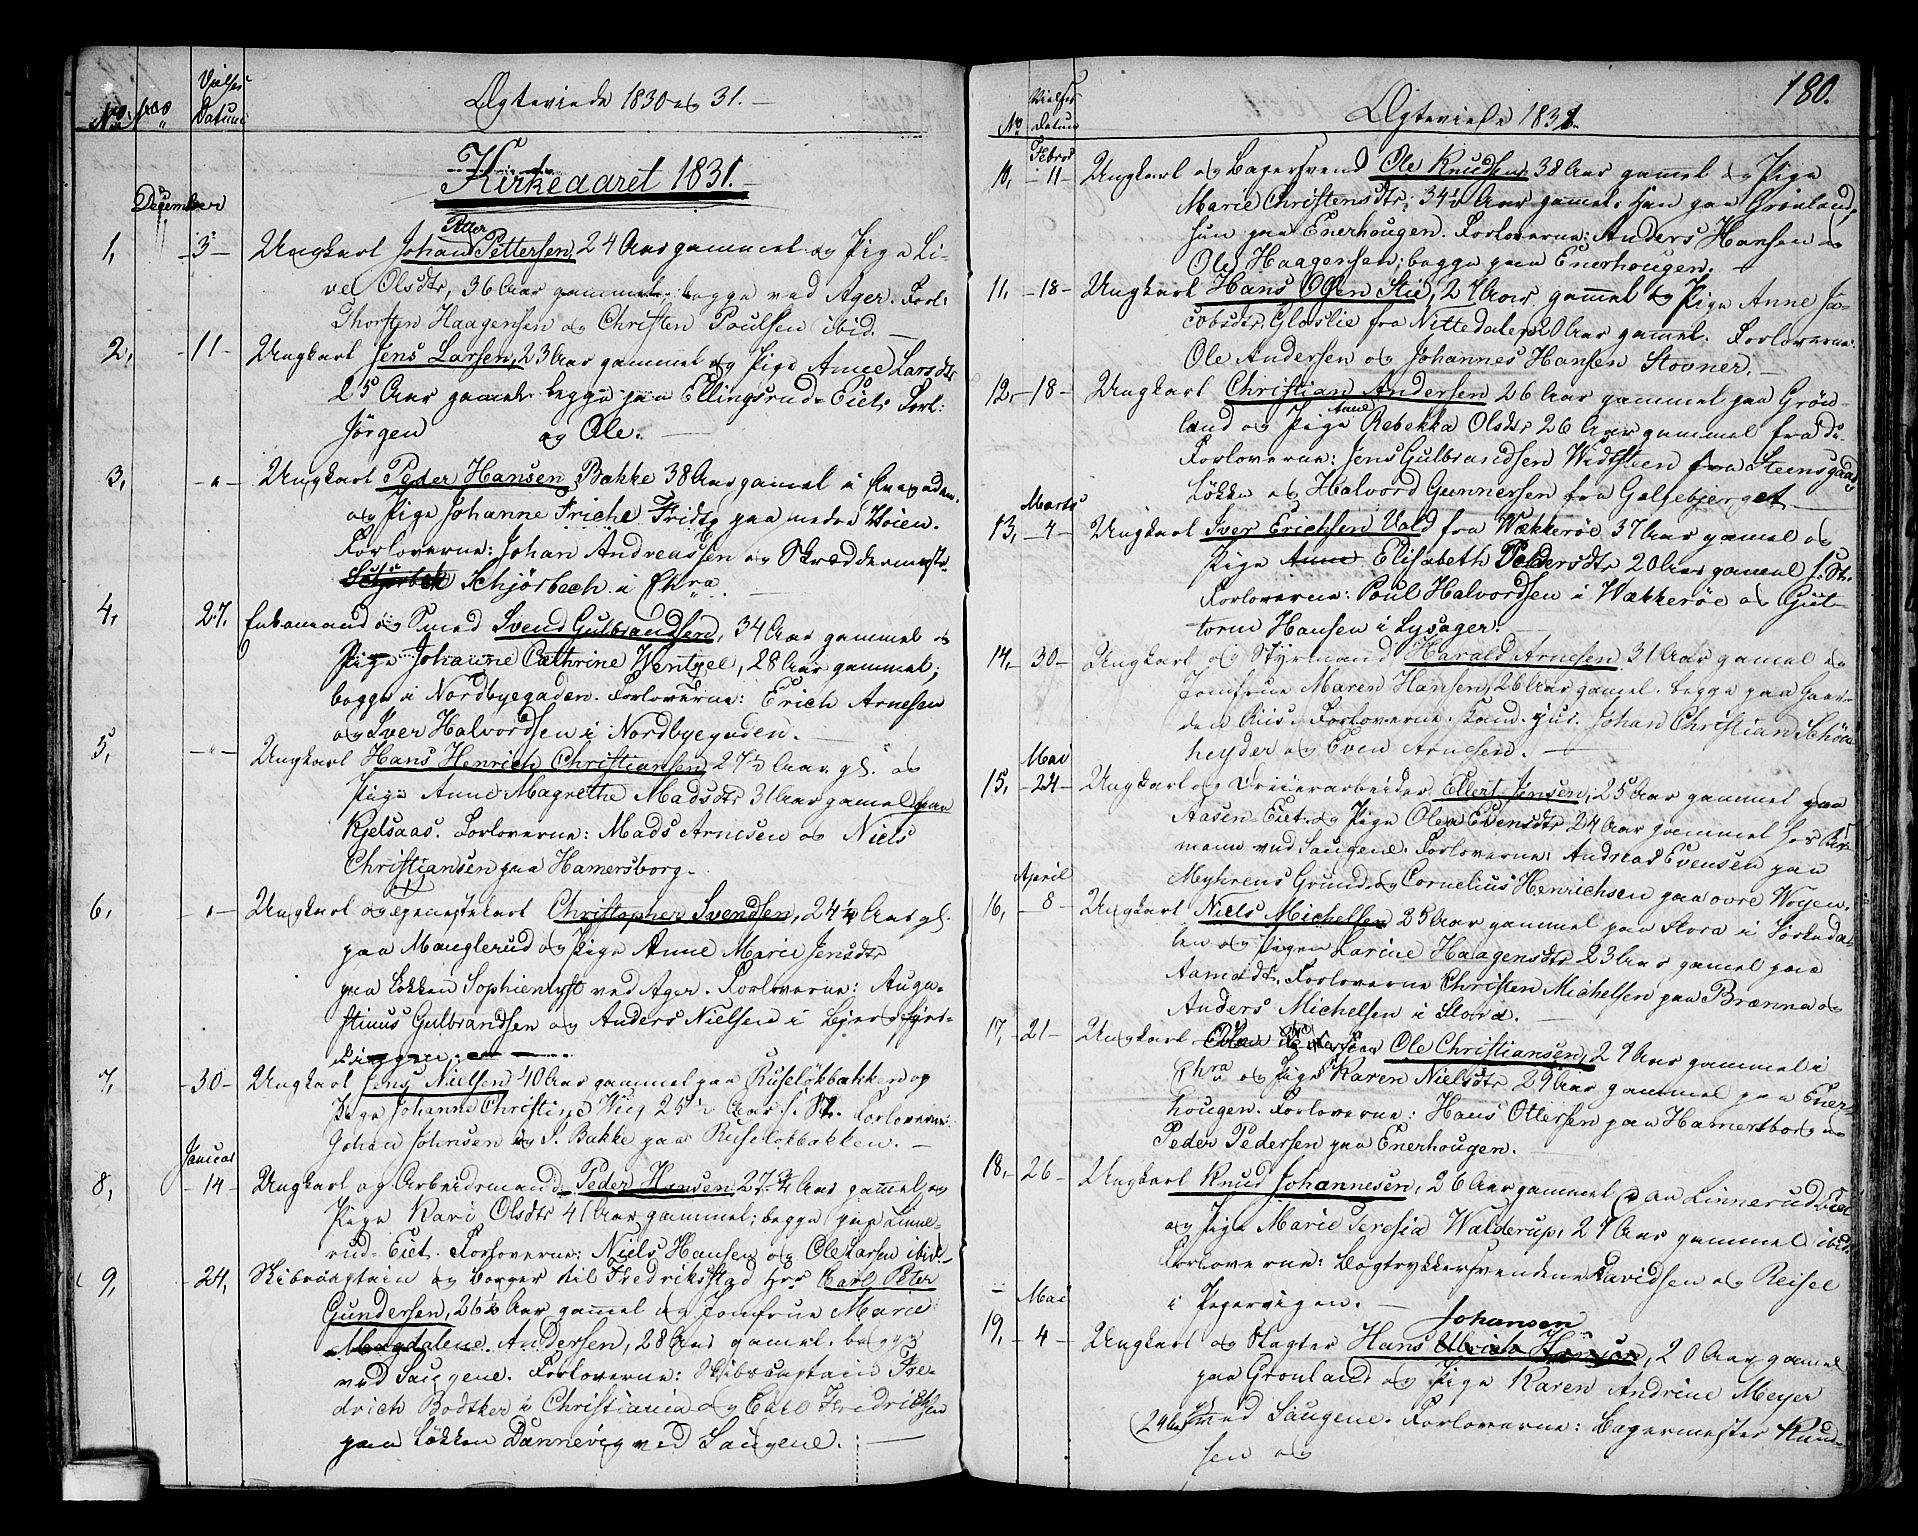 No. Vielses Datum
Ægteviede 1830 og 31.
Kirkeaaret 1831.
December
1, 3 Ungkarl Johan Petter Pettersen, 24 Aar gammel og Pige Li-
ve Olsdtr, 36 Aar gammel begge ved Ager. Forl:
Thorsten Haagensen og Christen Poulsen ibid.
2, 11 Ungkarl Jens Larsen, 23 Aar gammel og Pige Anne Larsdtr
25 Aar gamel begge paa Ellingsrud-Eiet, Forl:
Jörgen og Ole.
3, " Ungkarl Peder Hansen Bakke 38 Aar gamel i
og Pige Johanne Friche Fridtz paa nedre Woien.
Forloverne: Johan Andreassen og Skreddermestr.
Schjörbech i Chra.
4, 27. Enkemand og Smed Svend Gulbrandsen, 34 Aar gammel og
Pige Johanne Cathrine Wentzel, 28 Aar gammel;
begge i Nordbyegaden. Forloverne: Erich Arnesen
og Iver Halvordsen i Nordbyegaden.
5, " Ungkarl Hans Henrich Christiansen 27½ Aar gl. og
Pige Anne Magrethe Madsdtr 31 Aar gamel paa
Kjelsaas. Forloverne: Mads Arnesen og Niels
Christiansen paa Hamersborg.
6, " Ungkarl og Christopher Svendsen, 24½ Aar gl.
paa Manglerud og Pige Anne Marie Jensdtr
paa Løkken Sophienlyst ved Ager. Forloverne: Augu-
stinus Gulbrandsen og Anders Nielsen i
7, 30 Ungkarl Jens Nielsen 40 Aar gammel paa Ruseløkbakken og
Pige Johanne Christine Wiig 25½ Aar f. St. Forloverne:
Johan Johnsen og S. Bakke paa Ruseløkbakken.
Januar
8, 14 Ungkarl og Arbeidsmand Peder Hansen 27¾ Aar gammel og
Pige Kari Olsdtr 41 Aar gammel; begge paa Linne-
rud-Eiet. Forloverne: Niels Hansen og Ole Larsen ibid.
9, 24, Skibscaptain og Borger til Fredriksstad Hr Carl Peter
Gundersen, 26½ Aar gammel og Jomfrue Marie
Magdalene Andersen, 28 Aar gamel. begge
ved Saugene. Forloverne: Skibscaptain Fre-
drich Bødtker i Christiania og Carl Fridrichsen
paa Løkken Dannevig ved Saugene.
180.
No Vielses Datum
Ægteviede 1831.
Febror
10, 11 Ungkarl og Bagersvend Ole Knudsen 38 Aar gamel og Pige
Marie Christensdtr, 34½ Aar gamel. Han paa Grönland,
hun paa Enerhougen. Forloverne: Anders Hansen og
Ole Haagensen; begge paa Enerhougen.
11, 18 Ungkarl Hans Olsen Stie, 27 Aar, gammel og Pige Anne Ja-
cobsdtr Glaslie fra Nittedalen, 20 Aar gammel. Forloverne:
Ole Andersen og Johannes Hansen Stovner.
12, 18 Ungkarl Christian Andersen 26 Aar gammel paa Grön-
land og Pige Anne Rebekka Olsdtr 26 Aar gammel fra do
Forloverne: Jens Gulbrandsen Widtsteen fra Steensgaards
Løkke og Halvord Gunnersen fra Galgebjerget
Marts
13, 4 Ungkarl Iver Erichsen Vold fra Wækkerøe 37 Aar gamel og
Pige Anne Elisabeth Pedersdtr 20 Aar gamel f. St.
Forloverne: Poul Halvordsen i Wækkerøe og Gut-
torm Hansen i Lysager.
14, 30 Ungkarl og Styrmand Harald Arnesen 31 Aar gamel og
Jomfrue Maren Hansen, 26 Aar gamel. begge paa Gaar-
den Riis. Forloverne: Kand. jur. Johan Christian Schön-
heyder og Even Arnesen.
Mai
15, 24 Ungkarl og Dreierarbeider Ellert Jensen, 25 Aar gammel paa
Aasen-Eiet og Pige Olea Evensdtr 24 Aar gammel hos
mann ved Saugene. Forloverne: Andreas Evensen paa
Myhrens Grund og Cornelius Henrichsen paa övre Woyen.
April
16, 8 Ungkarl Niels Michelsen 25 Aar gammel paa Slora i Sørkeda-
len og Pigen Larine Haagensdtr 23 Aar gamel paa
Aamodt. Forloverne Christen Michelsen paa Brænna og
Anders Michelsen i Slora.
17, 21 Ungkarl Ole Christiansen, 27 Aar gammel i
Chra og Pige Karen Nielsdtr 29 Aar gammel paa Ener-
hougen. Forloverne: Hans Ottersen paa Hamersborg og
Peder Pedersen paa Enerhougen.
18, 26 Ungkarl Knud Johannesen, 26 Aar gammel paa Linnerud Eiet
og Pige Marie Teresia Walderup, 27 Aar gammel ibid.
Forloverne: Bogtrykkersvendene Davidsen og Reisel
i Pipervigen.
Mai
19, 4 Ungkarl og Slagter Hans Ulrich Hansen Johansen, 20 Aar gamel
paa Grönland og Pige Karen Andrine Meyer
(24 Aar gl) ved Saugene. Forloverne: Bagermester Knud-
sen og